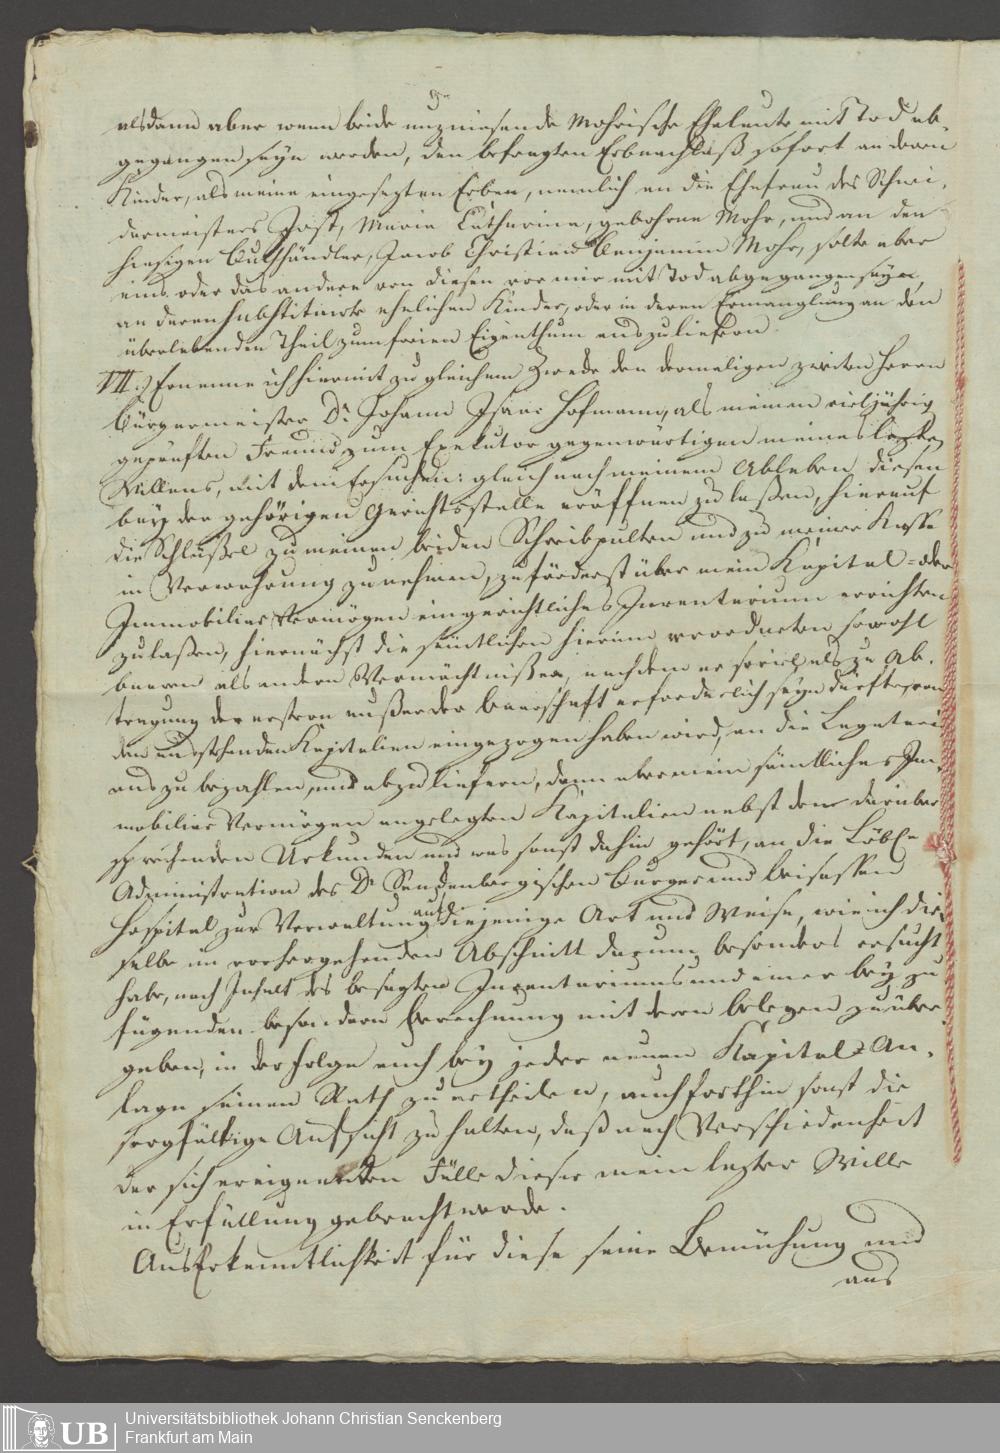 alsdann aber wenn beide anzuweisende Mohrische Eheleute mit Tod ab-
gegangen seyn werden, den besagten Erbnachlaß sofort an deren
Kinder, als meine eingesezten Erben, nemlich an die Ehefrau des Schnei-
dermeisters Jost, Maria Catharina, gebohrne Mohr, und an den
hiesigen Buchhändler, Jacob Christian Benjamin Mohr, solte aber
eins oder das andere von diesen vor mir mit Tod abgegangen seyn,
an deren substituirte ehelichen Kinder, oder in deren Ermanglung an den
überlebenden Theil zum freien Eigenthum auszuliefern.
VII.) Ernenne ich hiermit zu gleichem Zwecke den dermaligen zweiten Herrn
Bürgermeister Dr. Johann Isaac Hofmann, als meinen vieljährig
geprüften Freund, zum Exekutor gegenwärtigen meines lezten
Willens, mit dem Ersuchen: gleich nach meinem Ableben diesen
bey der gehörigen Gerichtsstelle eröffnen zu laßen, hierauf
die Schlüßel zu meinen beiden Schreibpulten und zu meiner Kasse
in Verwahrung zu nehmen, zuförderst über mein Kapital- oder
Immobiliar Vermögen ein gerichtliches Inventarium errichten
zu laßen, hiernächst die sämtlichen hierinn verordneten sowohl
baaren als andern Vermächtnißen, nachdem er soviel als zu Ab-
tragung der erstern außer der Baarschaft erforderlich seyn dürfte, von
den ausstehenden Kapitalien eingezogen haben wird, an die Legatarien
auszubezahlen, und abzuliefern, dann aber mein sämtliches Im-
mobiliar Vermögen angelegten Kapitalien nebst den darüber
sprechenden Urkunden und was sonst dahin gehört, an die Löbl.
Administration des Dr. Senckenbergischen Bürger und Beisassen
Hospital zur Verwaltung auf diejenige Art und Weise, wie ich die-
selbe im vorhergehenden Abschnitt darum besonders ersucht
habe, nach Inhalt des besagten Inventariums und einer bey zu
fügenden besondern Berechnung mit deren Belegen zu über-
geben, in der Folge auch bey jeder neuen Kapital-An-
lage seinen Rath zu ertheilen, auch forthin sonst die
sorgfältige Aufsicht zu halten, daß nach Verschiedenheit
der sich ereigneten Fälle dieser mein lezter Wille
in Erfüllung gebracht werde.
Aus Erkenntlichkeit für diese seine Bemühung und
aus
UB
Universitätsbibliothek Johann Christian Senckenberg
Frankfurt am Main